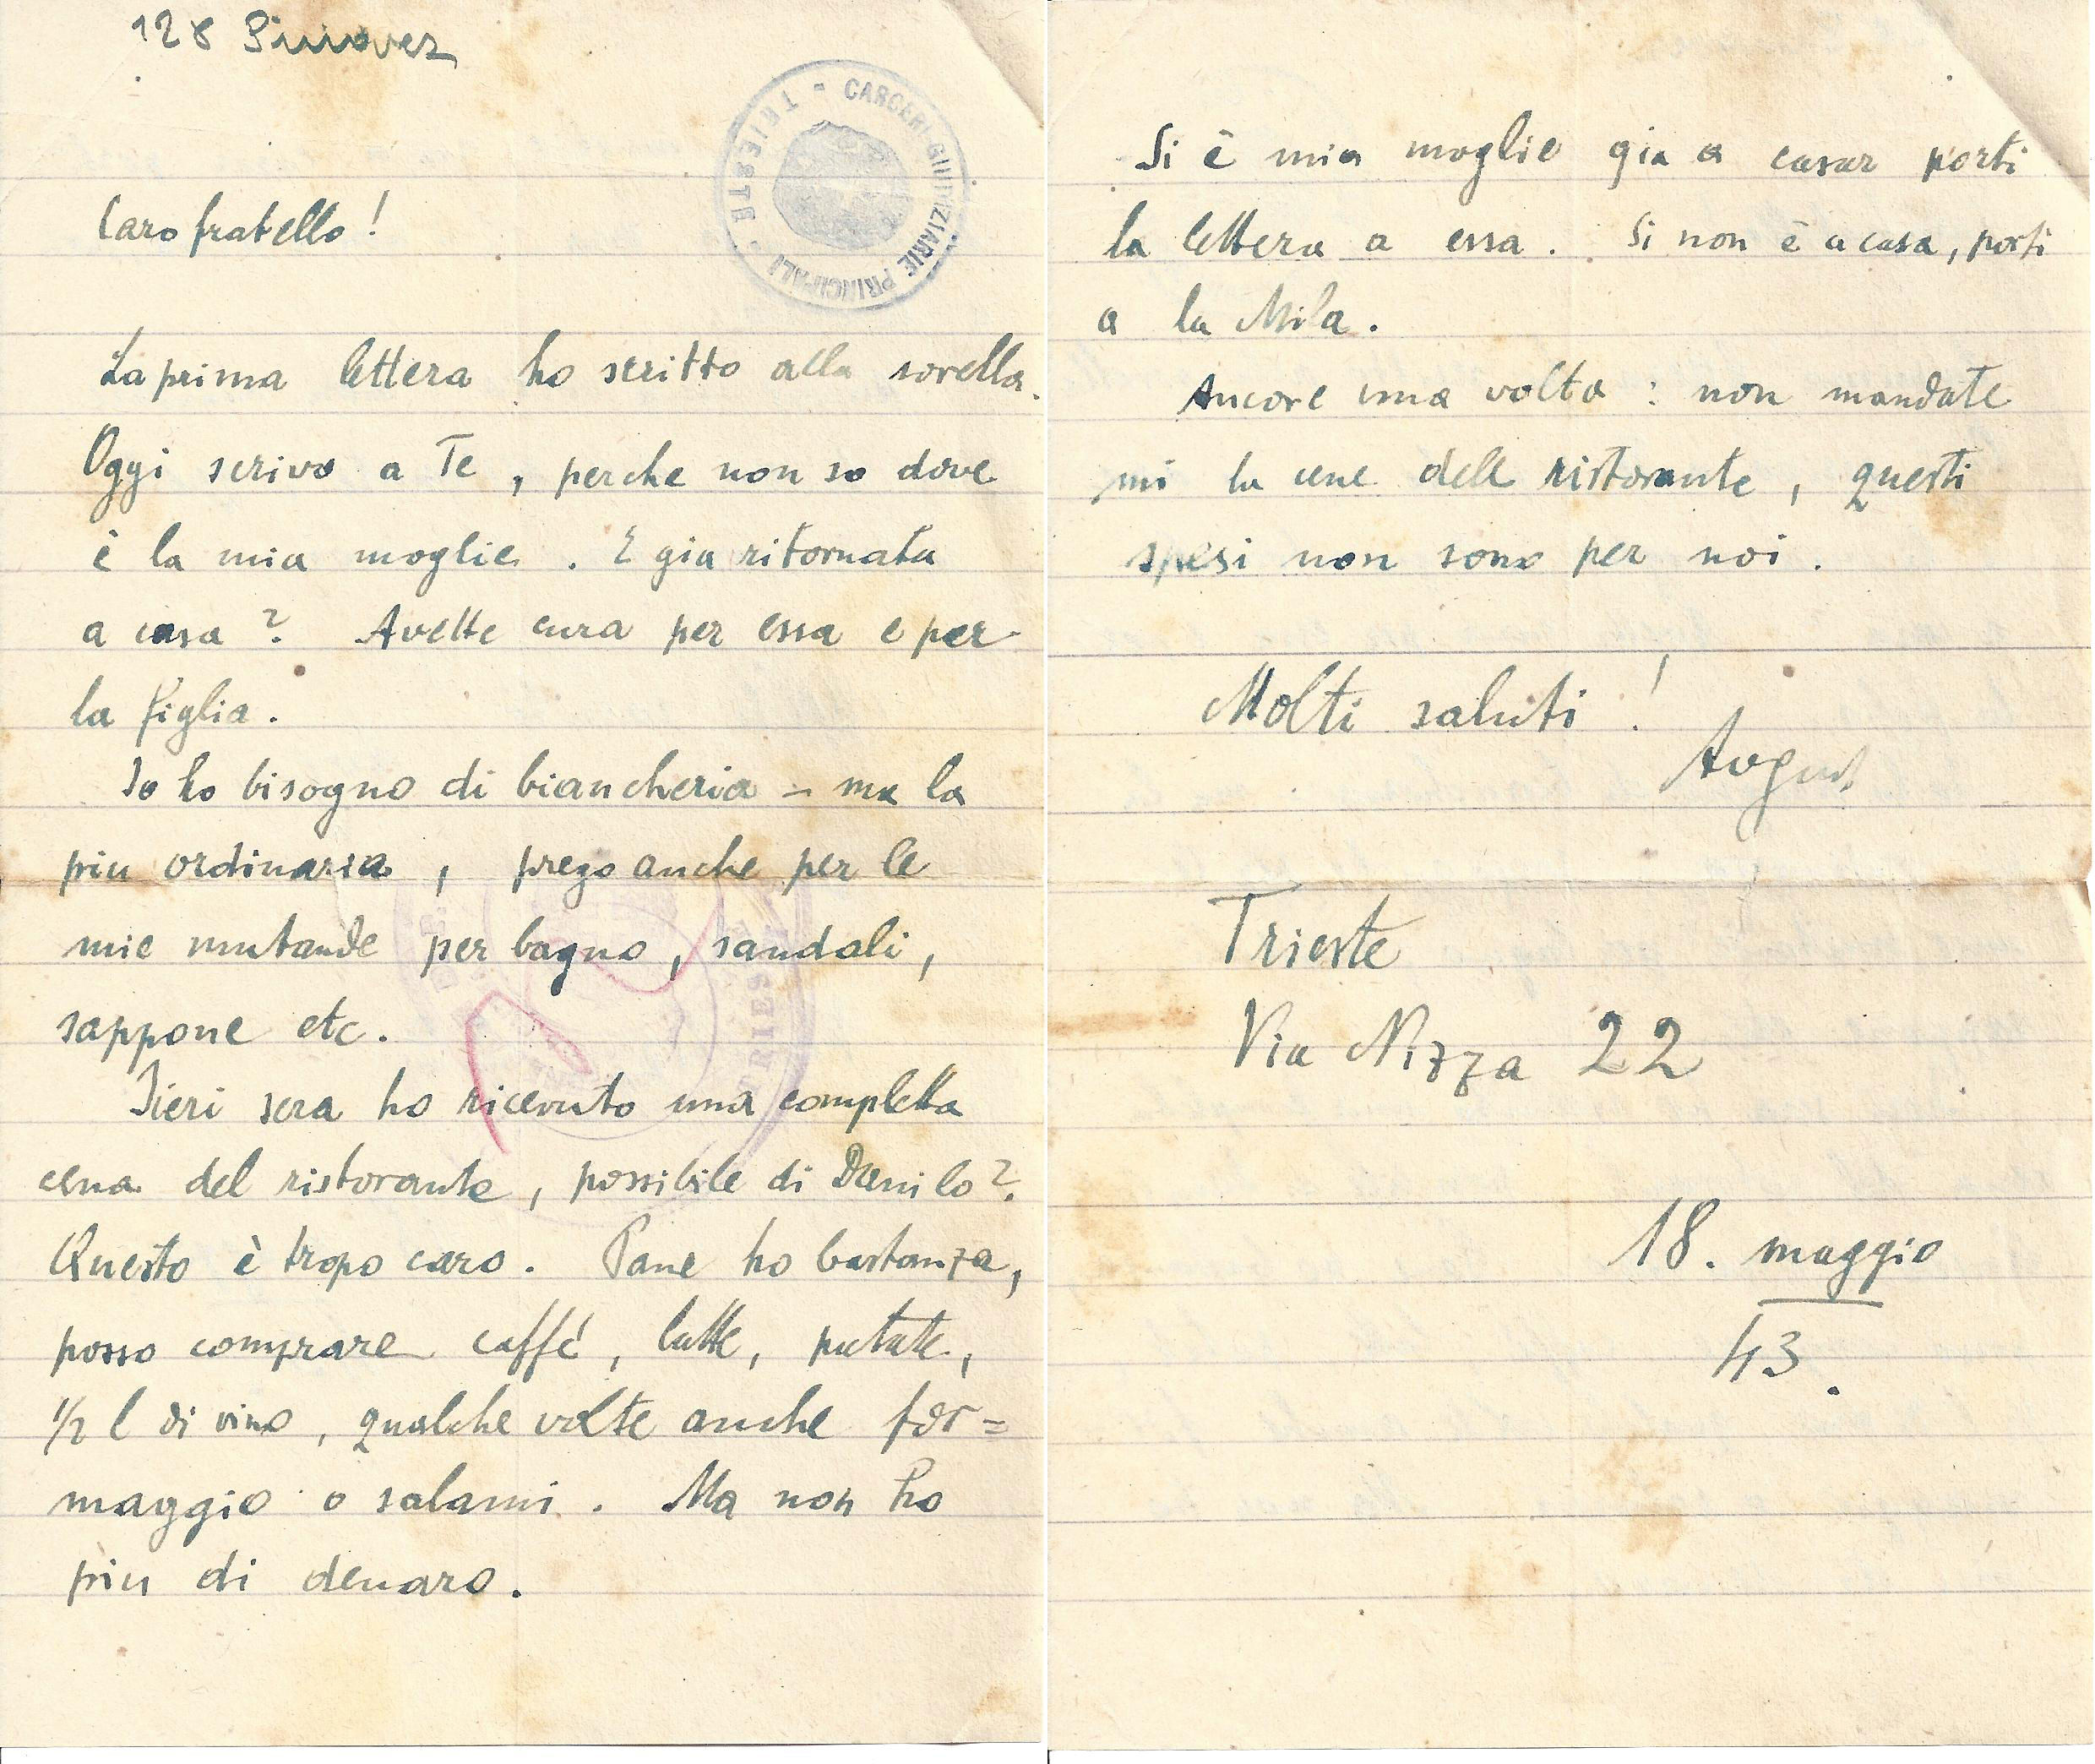 128
Caro fratello!
TRIESTE - CARCERI GIUDIZIARIE PRINCIPALI -
La prima lettera ho scritto alla sorella.
Oggi scrivo a Te, perche non so dove
è la mia moglie. E gia ritornata
a casa? Avette cura per essa e per
la figlia.
Io ho bisogno di biancheria - ma la
piu ordinaria, prego anche per le
mie mutande per bagno, sandali,
sappone etc.
TRIESTE
Iieri sera ho ricevuto una completta
cena del ristorante, possibile di Danilo?
Questo è tropo caro. Pane ho bastanza,
posso comprare caffé, latte, patate,
1/2 l di vino, qualche volte anche for=
maggio o salami. Ma non ho
piu di denaro.
Si è mia moglie gia a casa porti
la lettera a essa. Si non è a casa, porti
a la Mila.
Ancore una volta: non mandate
mi la cene dell ristorante, questi
spesi non sono per noi.
Molti saluti!
August
Trieste
Via Nizza 22
18. maggio
43.